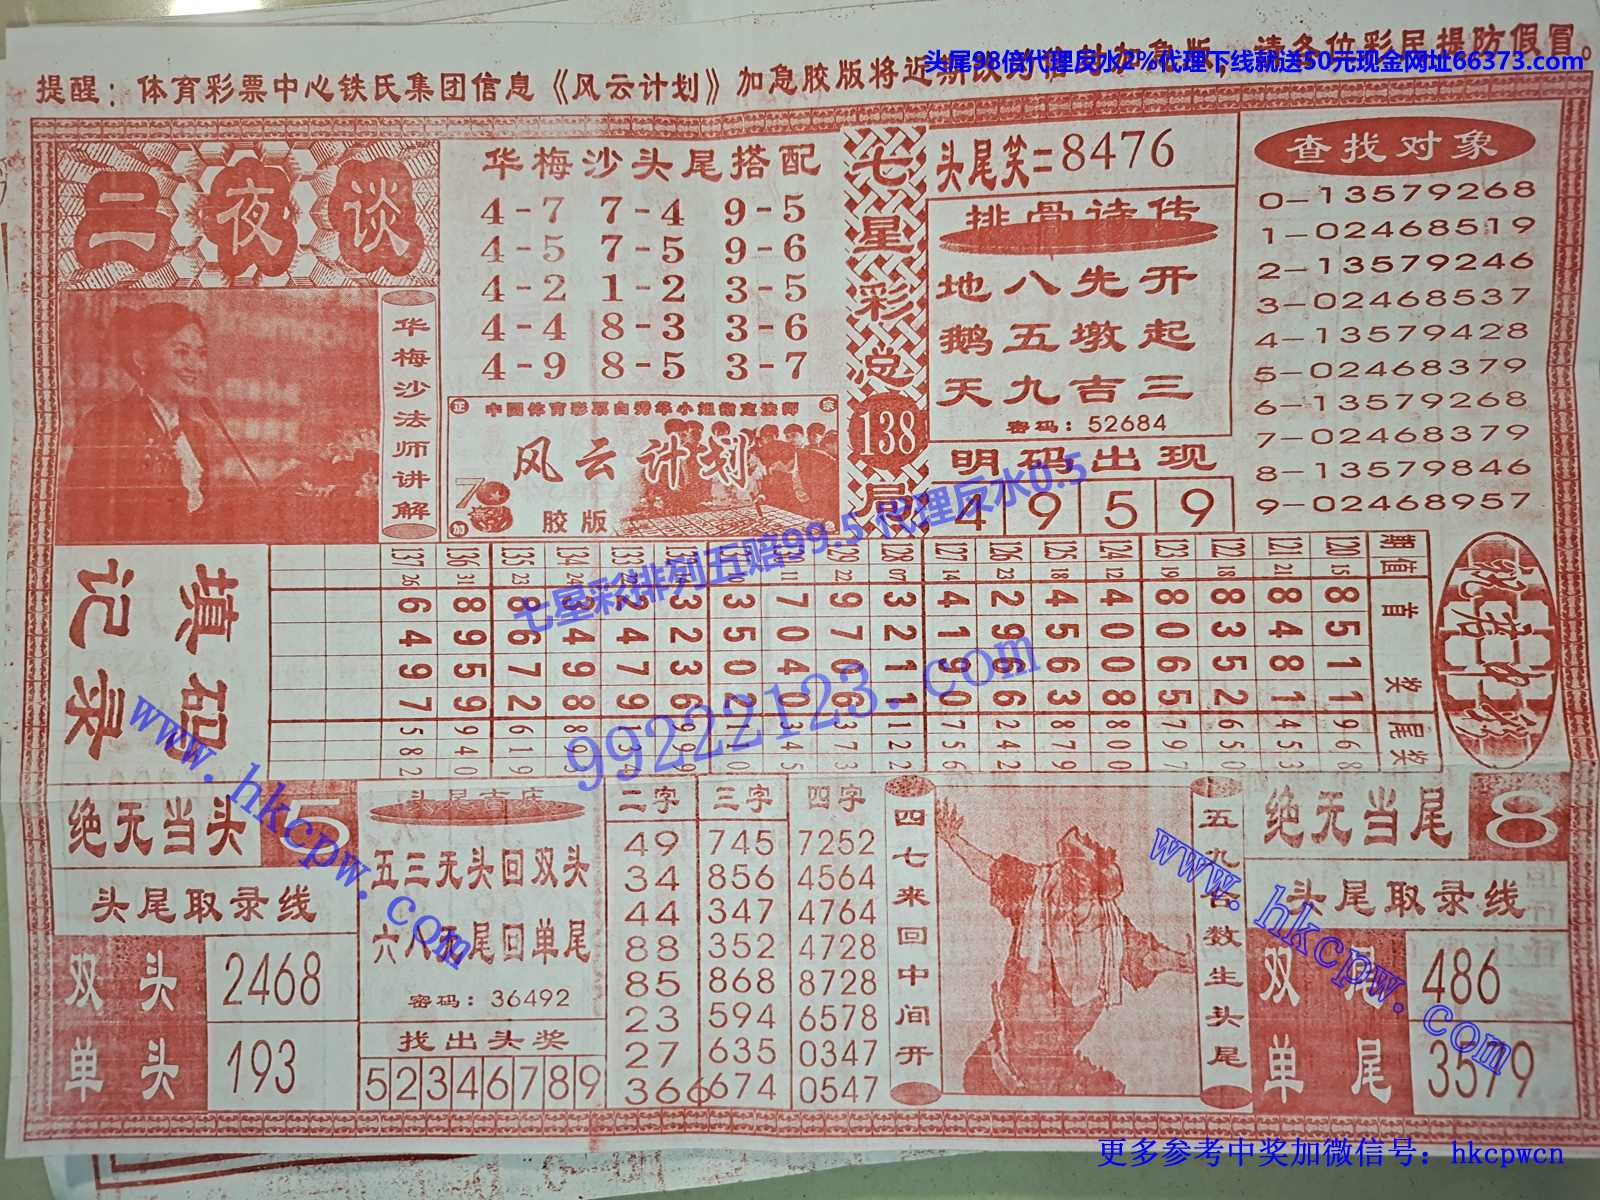 头尾98倍代理反水2%代理下线就送50元现金网址66373.com
提醒：体育彩票中心铁氏集团信息《风云计划》加急胶版将近期改为借助加急版，请各位彩民提防假冒。
二夜谈
华梅沙法师讲解
华梅沙头尾搭配
4-7 7-4 9-5
4-5 7-5 9-6
4-2 1-2 3-5
4-4 8-3 3-6
4-9 8-5 3-7
正 宗
风云计划
胶版
七星彩总局
138
头尾笑=8476
排骨诗传
地八先开
鹅五墩起
天九吉三
密码：52684
明码出现
4 9 5 9
查找对象
0-13579268
1-02468519
2-13579246
3-02468537
4-13579428
5-02468379
6-13579268
7-02468379
8-13579846
9-02468957
七星彩排列五赔99.5 代理反水0.5
99222123.com
填码记录
期 值 首 奖 尾奖
137 26 6 4 9 7 5 8 2
136 31 8 9 5 9 9 4 0
135 23 8 6 7 2 6 1 9
127 14 4 1 9 0 7 5 6
126 23 2 9 6 6 2 4 2
125 18 4 5 6 3 8 7 9
124 12 4 0 0 8 8 0 0
123 19 8 0 6 5 7 9 7
122 18 8 3 5 2 6 5 0
121 21 8 4 8 1 4 5 3
120 15 8 5 1 1 9 6 8
绝无当头 5
头尾取录线
双头 2468
单头 193
五三无头回双头
六八无尾回单尾
密码：36492
找出头奖
5 2 3 4 6 7 8 9
二字 三字 四字
49 745 7252
34 856 4564
44 347 4764
88 352 4728
85 868 8728
23 594 6578
27 635 0347
366 674 0547
四七来回中间开
五九合数生头尾
绝无当尾 8
头尾取录线
双尾 486
单尾 3579
www.hkcpw.com
www.hkcpw.com
更多参考中奖加微信号：hkcpwcn